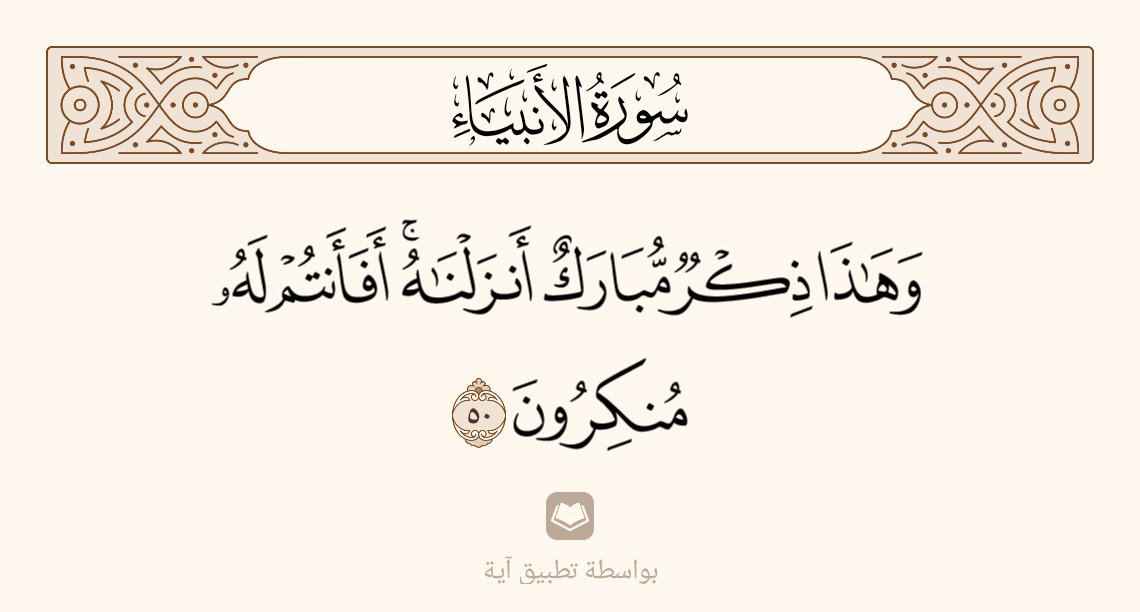 سُورَةُ الأَنبِيَاءِ
وَهَٰذَا ذِكْرٌ مُّبَارَكٌ أَنزَلْنَٰهُ ۚ أَفَأَنتُمْ لَهُۥ
مُنكِرُونَ ٥٠
بواسطة تطبيق آية